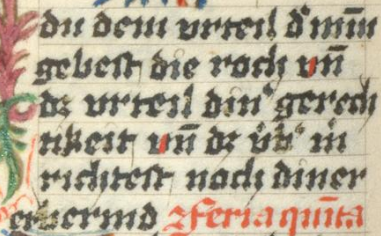 du dem vrteil d' min
gebest die roch vn̄
dz vrteil din' gerech
tikeit vn̄ dz vb' in
richtest noch diner
erbermd Feria quīta